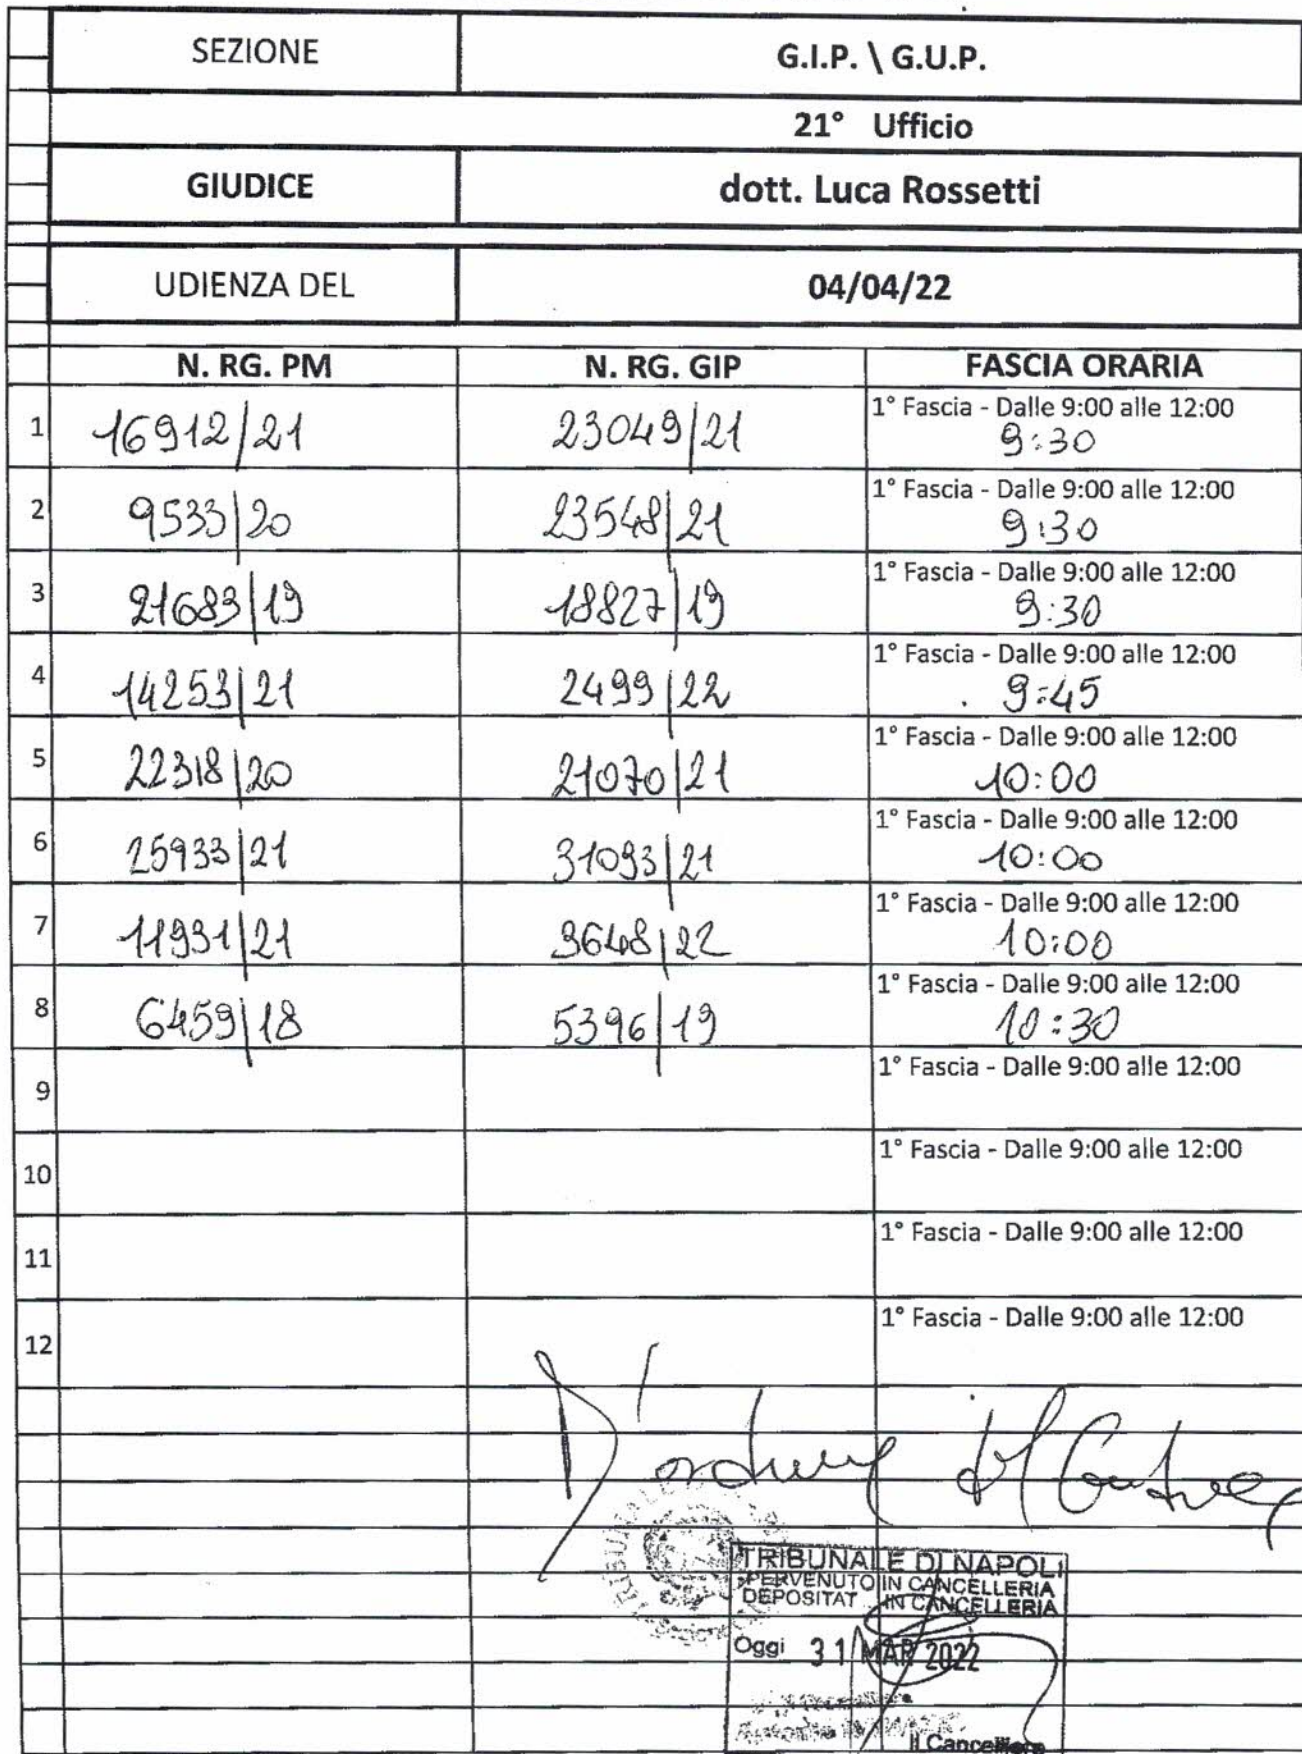 SEZIONE G.I.P. \ G.U.P.
21° Ufficio
GIUDICE dott. Luca Rossetti
UDIENZA DEL 04/04/22
N. RG. PM N. RG. GIP FASCIA ORARIA
1 16912/21 23049/21 1° Fascia - Dalle 9:00 alle 12:00
9:30
2 9533/20 23548/21 1° Fascia - Dalle 9:00 alle 12:00
9:30
3 21683/19 18827/19 1° Fascia - Dalle 9:00 alle 12:00
9:30
4 14253/21 2499/22 1° Fascia - Dalle 9:00 alle 12:00
9:45
5 22318/20 21070/21 1° Fascia - Dalle 9:00 alle 12:00
10:00
6 25933/21 31093/21 1° Fascia - Dalle 9:00 alle 12:00
10:00
7 11931/21 3648/22 1° Fascia - Dalle 9:00 alle 12:00
10:00
8 6459/18 5396/19 1° Fascia - Dalle 9:00 alle 12:00
10:30
9 1° Fascia - Dalle 9:00 alle 12:00
10 1° Fascia - Dalle 9:00 alle 12:00
11 1° Fascia - Dalle 9:00 alle 12:00
12 1° Fascia - Dalle 9:00 alle 12:00
TRIBUNALE DI NAPOLI
PERVENUTO IN CANCELLERIA
DEPOSITAT IN CANCELLERIA
Oggi 31 MAR 2022
Il Cancelliere